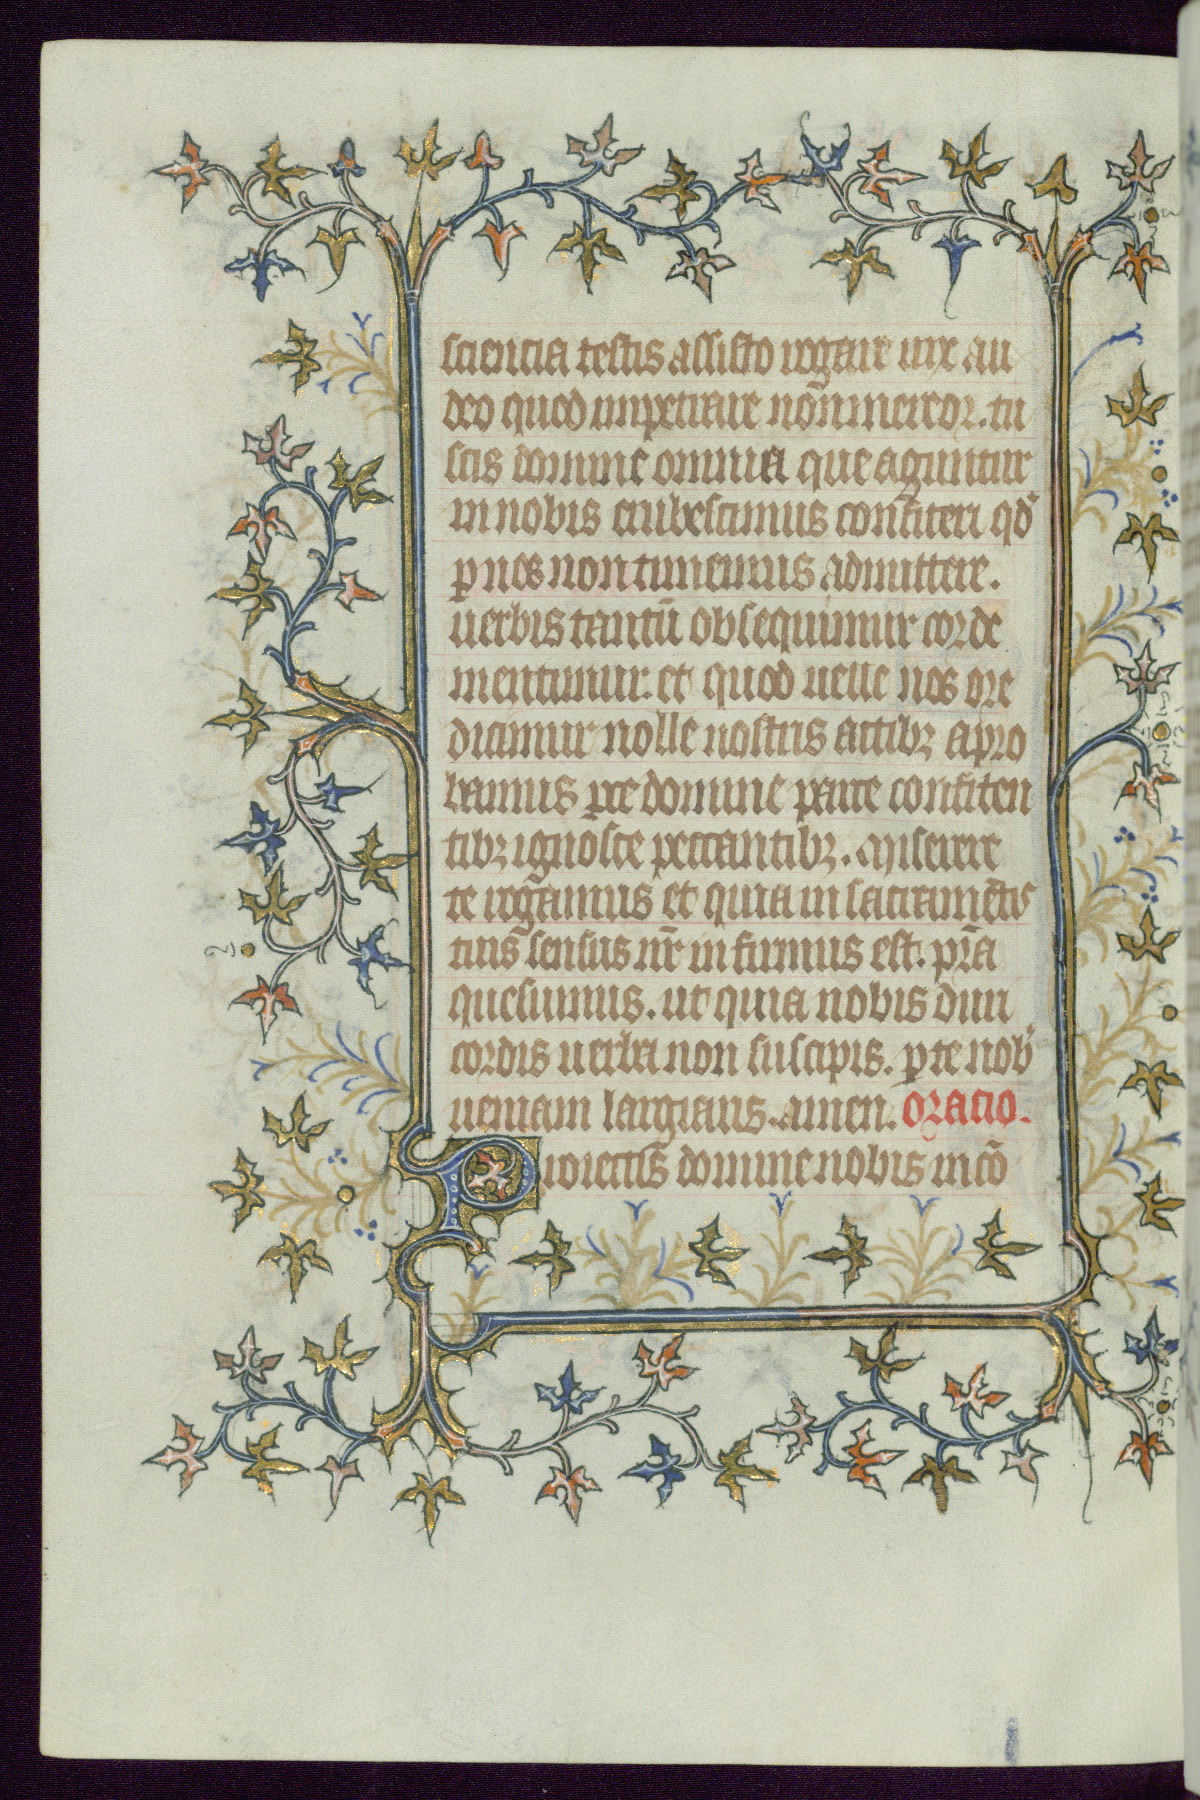 scientia testis assisto rogare uix au
deo quod impetrare non̄ mereor. tu
scis domine omnia que aguntur
in nobis erubescimus confiteri qd̓
p nos non timemus admittere.
uerbis tantū obsequimur corde
mentimur. et quod uelle nos ore
dicimur nolle nostris actibꝫ apro
bamus p̄ce domine parce confiten
tibꝫ ignosce peccantibꝫ. Miserere
te rogamus et quia in sacramētis
tuis sensus nr̄ infirmus est. pr̄a
quesumus. ut quia nobis duri
cordis uerba non suscipis. p te nob̓
ueniam largiaris. amen. oracio.
Proiectus domine nobis in cō